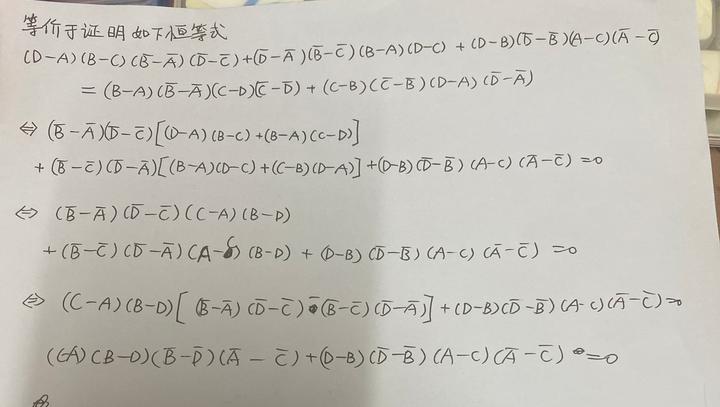 等价于证明如下恒等式
(D-A)(B-C)(B̅-A̅)(D̅-C̅)+(D̅-A̅)(B̅-C̅)(B-A)(D-C)+(D-B)(D̅-B̅)(A-C)(A̅-C̅)
=(B-A)(B̅-A̅)(C-D)(C̅-D̅)+(C-B)(C̅-B̅)(D-A)(D̅-A̅)
⇔ (B̅-A̅)(D̅-C̅)[(D-A)(B-C)+(B-A)(C-D)]
+(B̅-C̅)(D̅-A̅)[(B-A)(D-C)+(C-B)(D-A)]+(D-B)(D̅-B̅)(A-C)(A̅-C̅)=0
⇔ (B̅-A̅)(D̅-C̅)(C-A)(B-D)
+(B̅-C̅)(D̅-A̅)(A-C)(B-D)+(D-B)(D̅-B̅)(A-C)(A̅-C̅)=0
⇔ (C-A)(B-D)[(B̅-A̅)(D̅-C̅)-(B̅-C̅)(D̅-A̅)]+(D-B)(D̅-B̅)(A-C)(A̅-C̅)=0
(C-A)(B-D)(B̅-D̅)(A̅-C̅)+(D-B)(D̅-B̅)(A-C)(A̅-C̅)=0